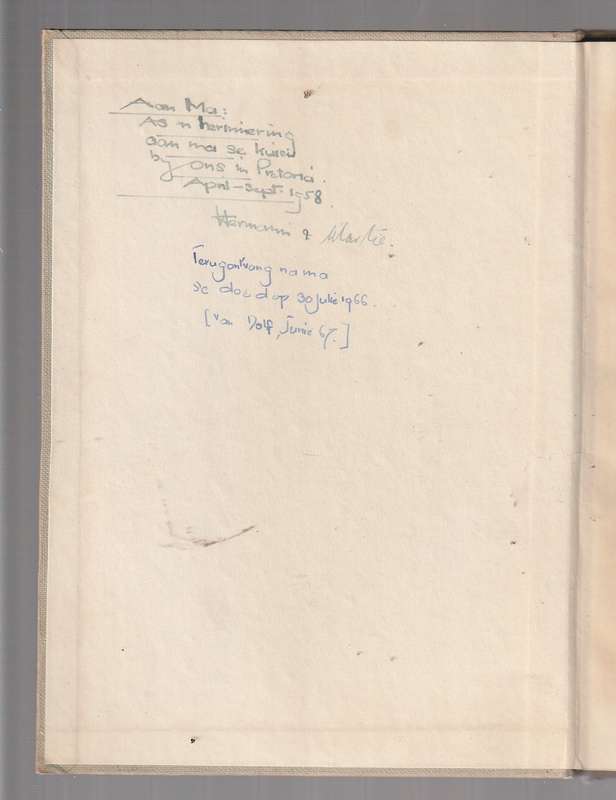 Aan Ma:
As 'n herinnering
aan ma se kuier
by ons in Pretoria.
April-Sept. 1958.
Hermann & Martie.
Terugontvang na ma
se dood op 30 Julie 1966.
[van Dolf, Junie 67.]